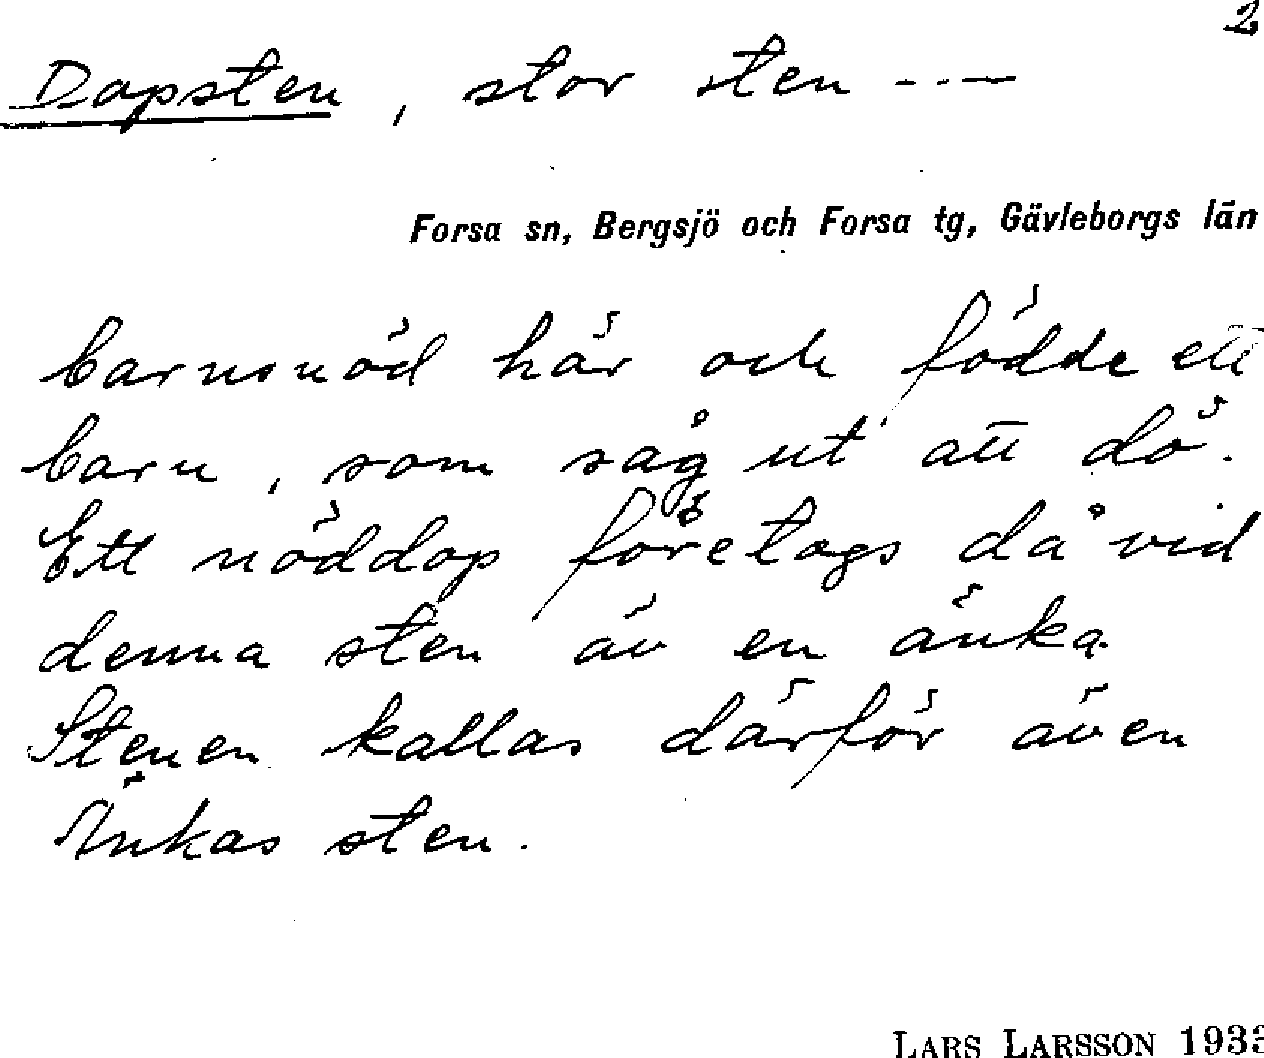 2
Dopsten, stor sten ---
Forsa sn, Bergsjö och Forsa tg, Gävleborgs län
barnsnöd här och födde ett
barn, som såg ut att dö.
Ett nöddop företogs då vid
denna sten av en änka.
Stenen kallas därför även
Änkas sten.
LARS LARSSON 1933